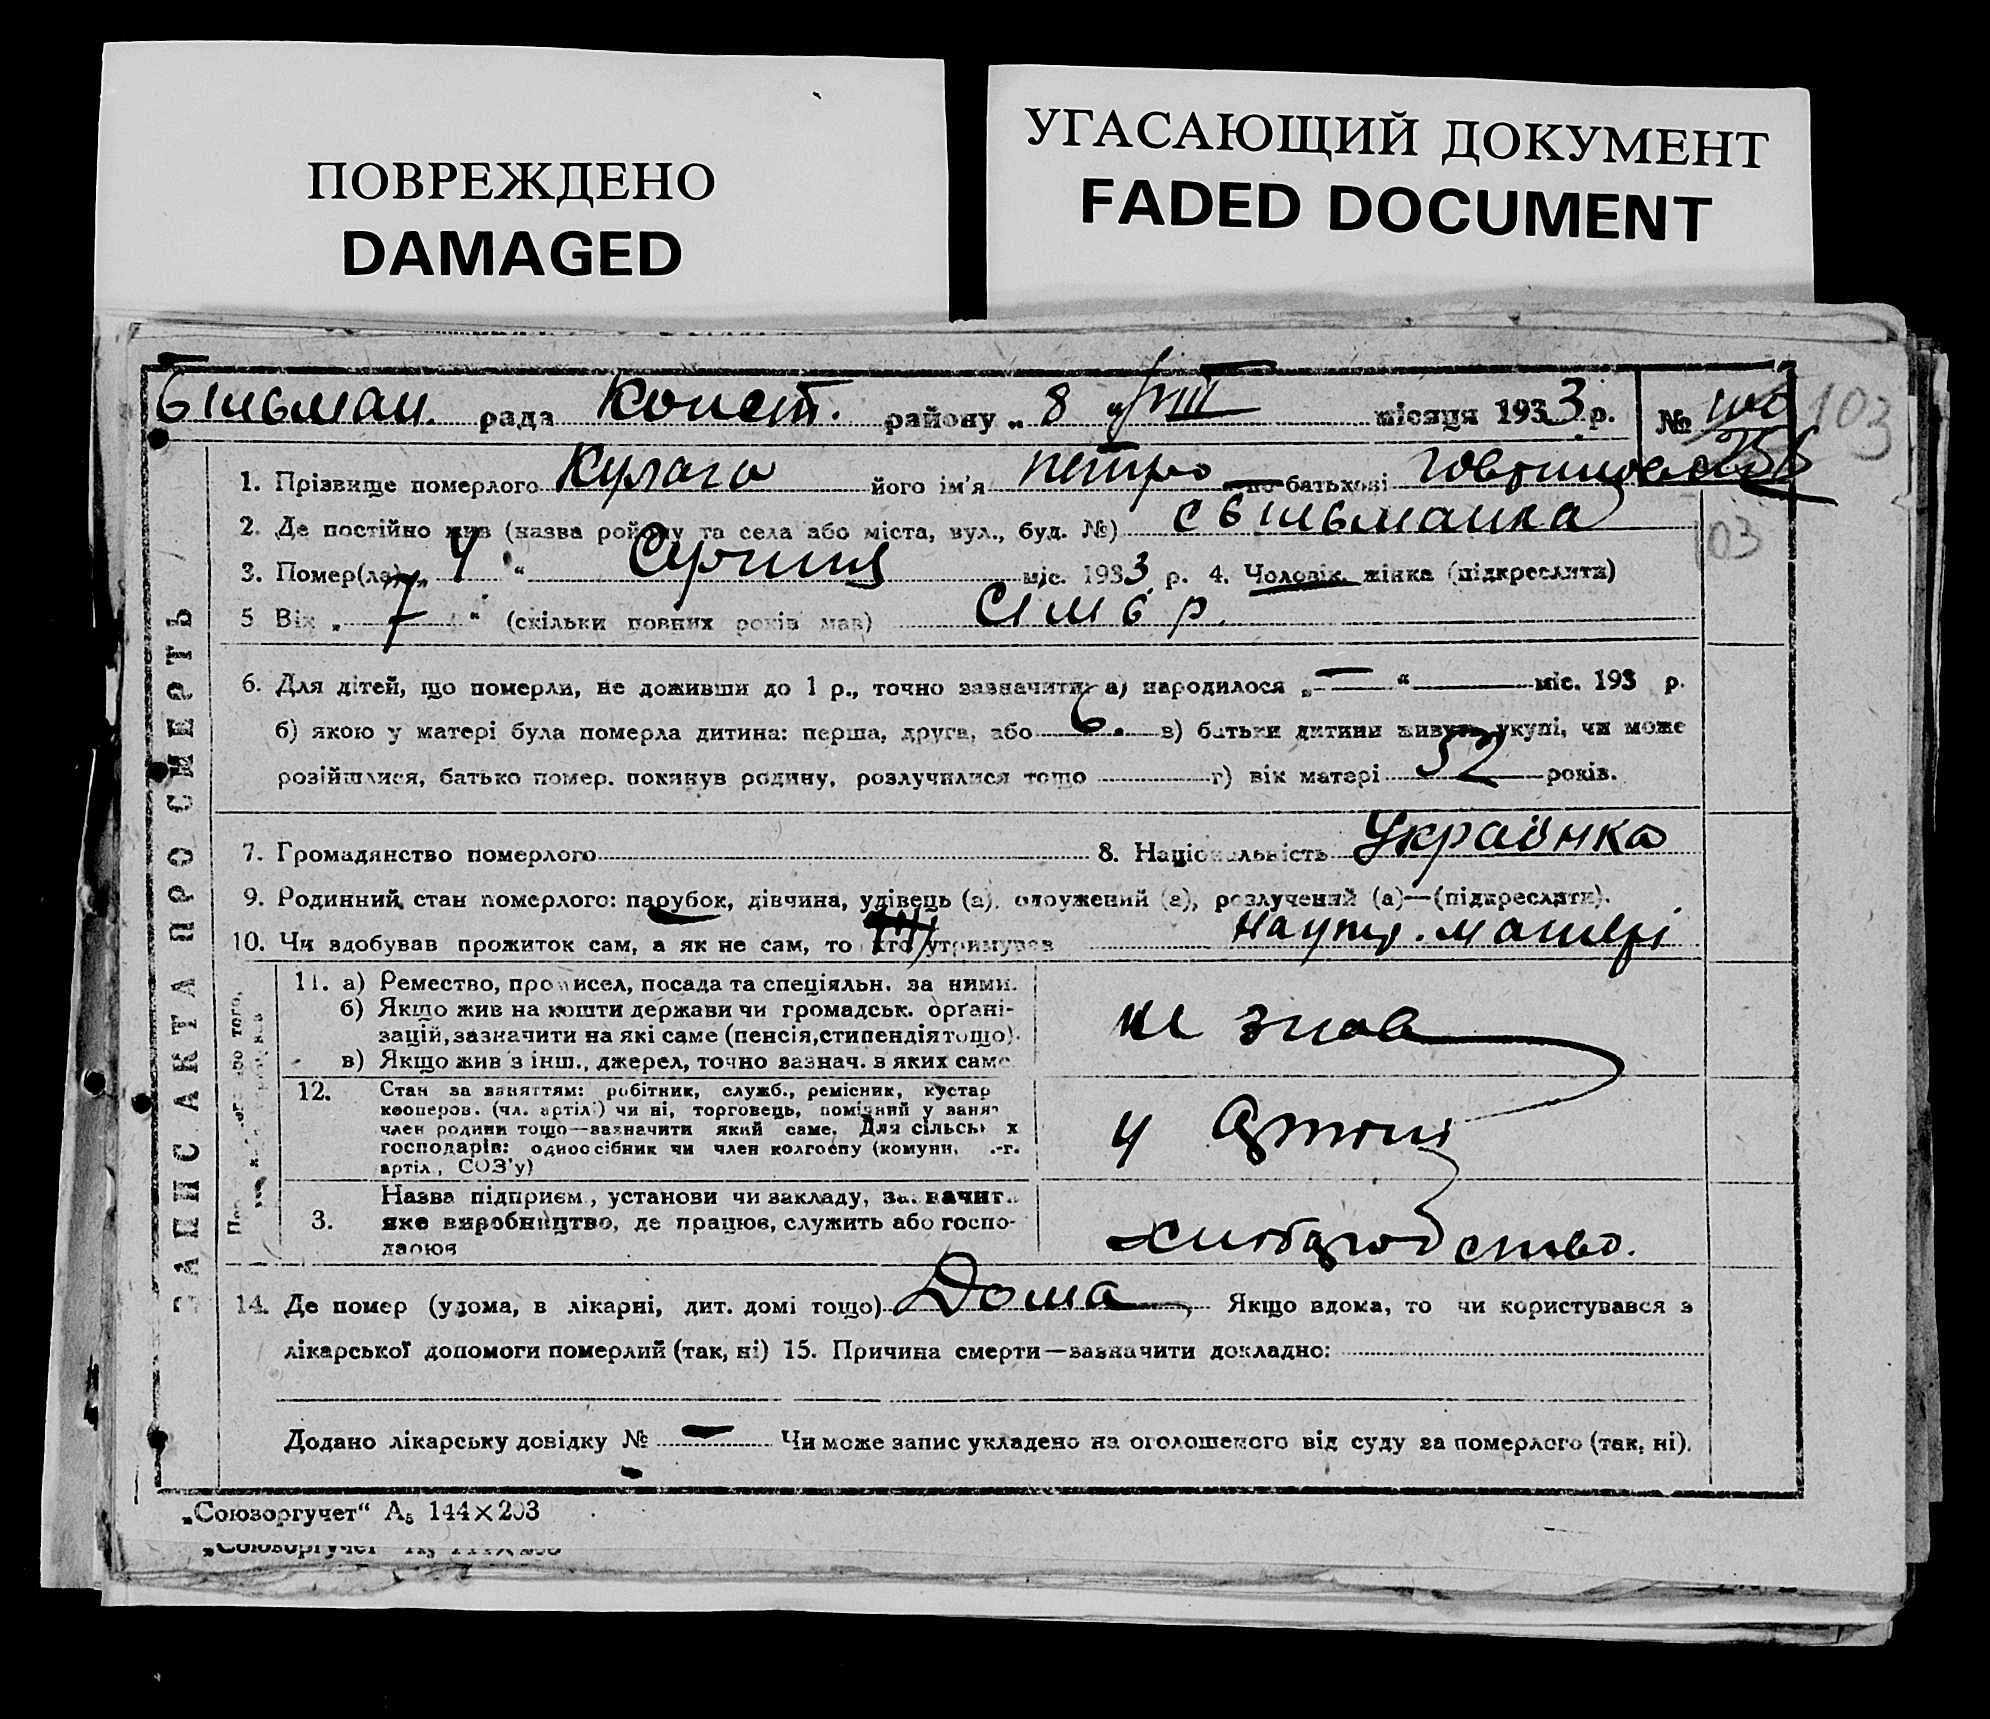 ПОВРЕЖДЕНО
DAMAGED
УГАСАЮЩИЙ ДОКУМЕНТ
FADED DOCUMENT
Більман. рада Конст. району „ 8 “ VIII місяця 1933 р. №
103
1. Прізвище померлого Кулага його ім'я Петро по батькові
2. Де постійно жив (назва району та села або міста, вул., буд. №) с Більманка
03
3. Помер(ла) „ 4 “ Серпня міс. 1933 р. 4. Чоловік, жінка (підкреслити)
5 Вік „ 7 “ (скільки повних років мав) сімь р.
6. Для дітей, що померли, не доживши до 1 р., точно зазначити: а) народилося „ — “ міс. 193 р.
б) якою у матері була померла дитина: перша, друга, або 6. в) батьки дитини живуть укупі, чи може
розійшлися, батько помер, покинув родину, розлучилися тощо г) вік матері 52 років.
7. Громадянство померлого 8. Національність Українка
9. Родинний стан померлого: парубок, дівчина, удівець (а), одружений (а), розлучений (а)—(підкреслити).
10. Чи здобував прожиток сам, а як не сам, то хто утримував на утр. матері
11. а) Ремество, промисел, посада та спеціяльн. за ними.
б) Якщо жив на кошти держави чи громадськ. орґані-
зацій, зазначити на які саме (пенсія, стипендія тощо).
в) Якщо жив з інш., джерел, точно зазнач. з яких саме
не знав
12. Стан за заняттям: робітник, служб., ремісник, кустар
кооперов. (чл. артілі) чи ні, торговець, помічний у занят
член родини тощо—зазначити який саме. Для сільськ х
господарів: одноосібник чи член колгоспу (комуни, .-г.
артіл, СОЗ'у)
у Артілі
Назва підприєм., установи чи закладу, зазначит
3. яке виробництво, де працює, служить або госпо-
дарює
хліборобство.
14. Де помер (удома, в лікарні, дит. домі тощо) Дома Якщо вдома, то чи користувався з
лікарської допомоги померлий (так, ні) 15. Причина смерти—зазначити докладно:
Додано лікарську довідку № — Чи може запис укладено на оголошеного від суду за померлого (так, ні).
ЗАПИС АКТА ПРО СМЕРТЬ
„Союзоргучет“ А₅ 144×203
„Союзоргучет